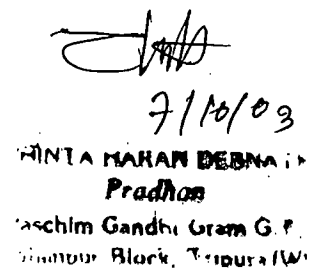 7/10/03
HINTA MAHAN DEBNA
Pradhan
aschim Gandhi Gram G.P.
Block, Tripura (W